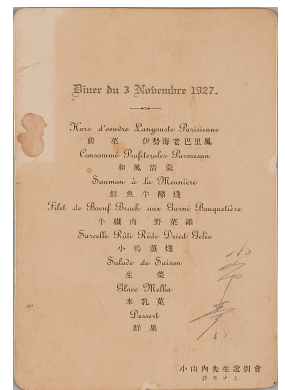 Diner du 3 Novembre 1927.
Hors d'oeudre Langouste Parisienne
前菜 伊勢海老巴里風
Consommé Profiteroles Parmesan
和風清羹
Saumon à la Meunière
鮮魚牛酪燒
Filet de Boeuf Broch aux Garni Bouquetière
牛繊肉 野菜雜
Sarcelle Rôti Rède Dried Gelée
小鴨蒸燒
Salade de Saison
生菜
Glace Melba
氷乳菓
Dessert
鮮果
小山內先生送別會
於モナミ